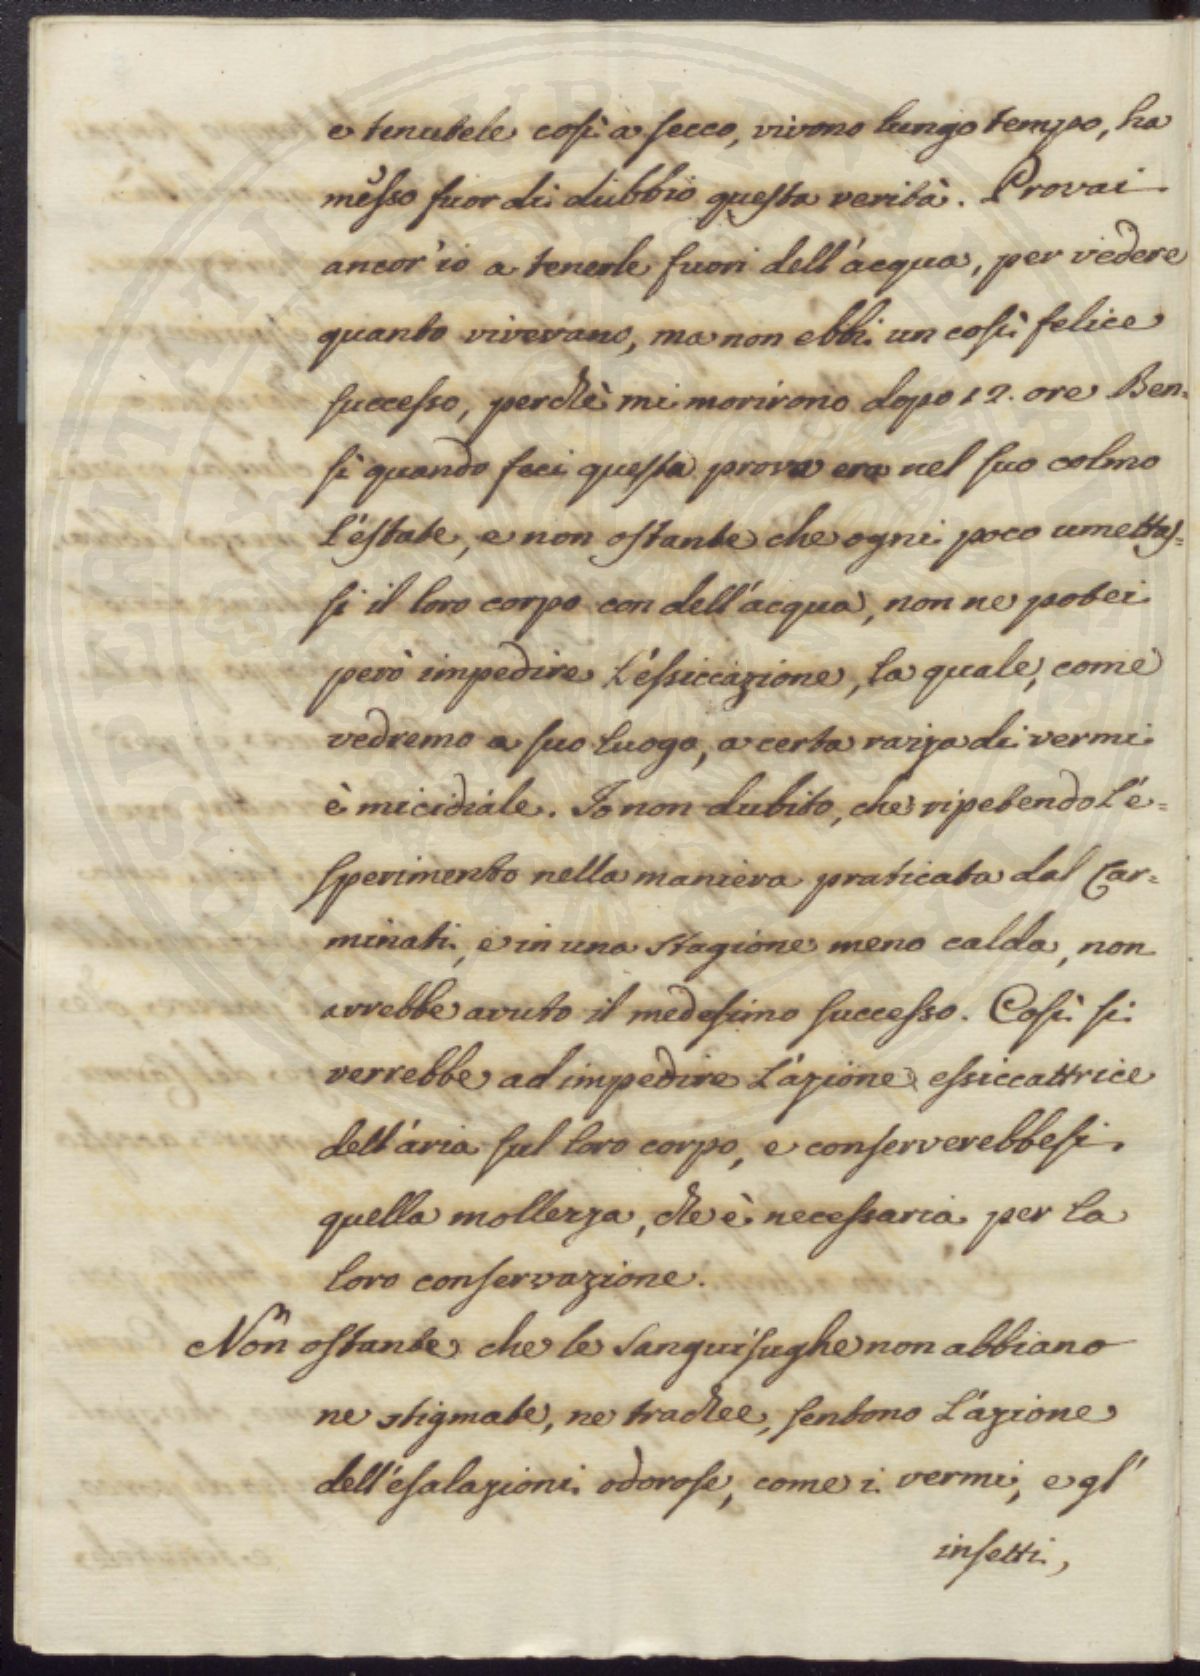 e tenutele così a secco, vivono lungo tempo, ha
messo fuor di dubbio questa verità. Provai
ancor'io a tenerle fuori dell'acqua, per vedere
quanto vivevano, ma non ebbi un così felice
successo, perchè mi morirono dopo 12. ore Ben-
sì quando feci questa prova era nel suo colmo
l'estate, e non ostante che ogni poco umettas=
si il loro corpo con dell'acqua, non ne potei
però impedire l'essiccazione, la quale, come
vedremo a suo luogo, a certa razza di vermi
è micidiale. Io non dubito, che ripetendo l'e=
sperimento nella maniera praticata dal Car=
minati, e in una stagione meno calda, non
avrebbe avuto il medesimo successo. Così si
verrebbe ad impedire l'azione essiccattrice
dell'aria sul loro corpo, e conserverebbesi
quella mollezza, che è necessaria per la
loro conservazione.
Non ostante che le Sanguisughe non abbiano
ne stigmate, ne trachee, sentono l'azione
dell'esalazioni odorose, come i vermi, e gl'
insetti,